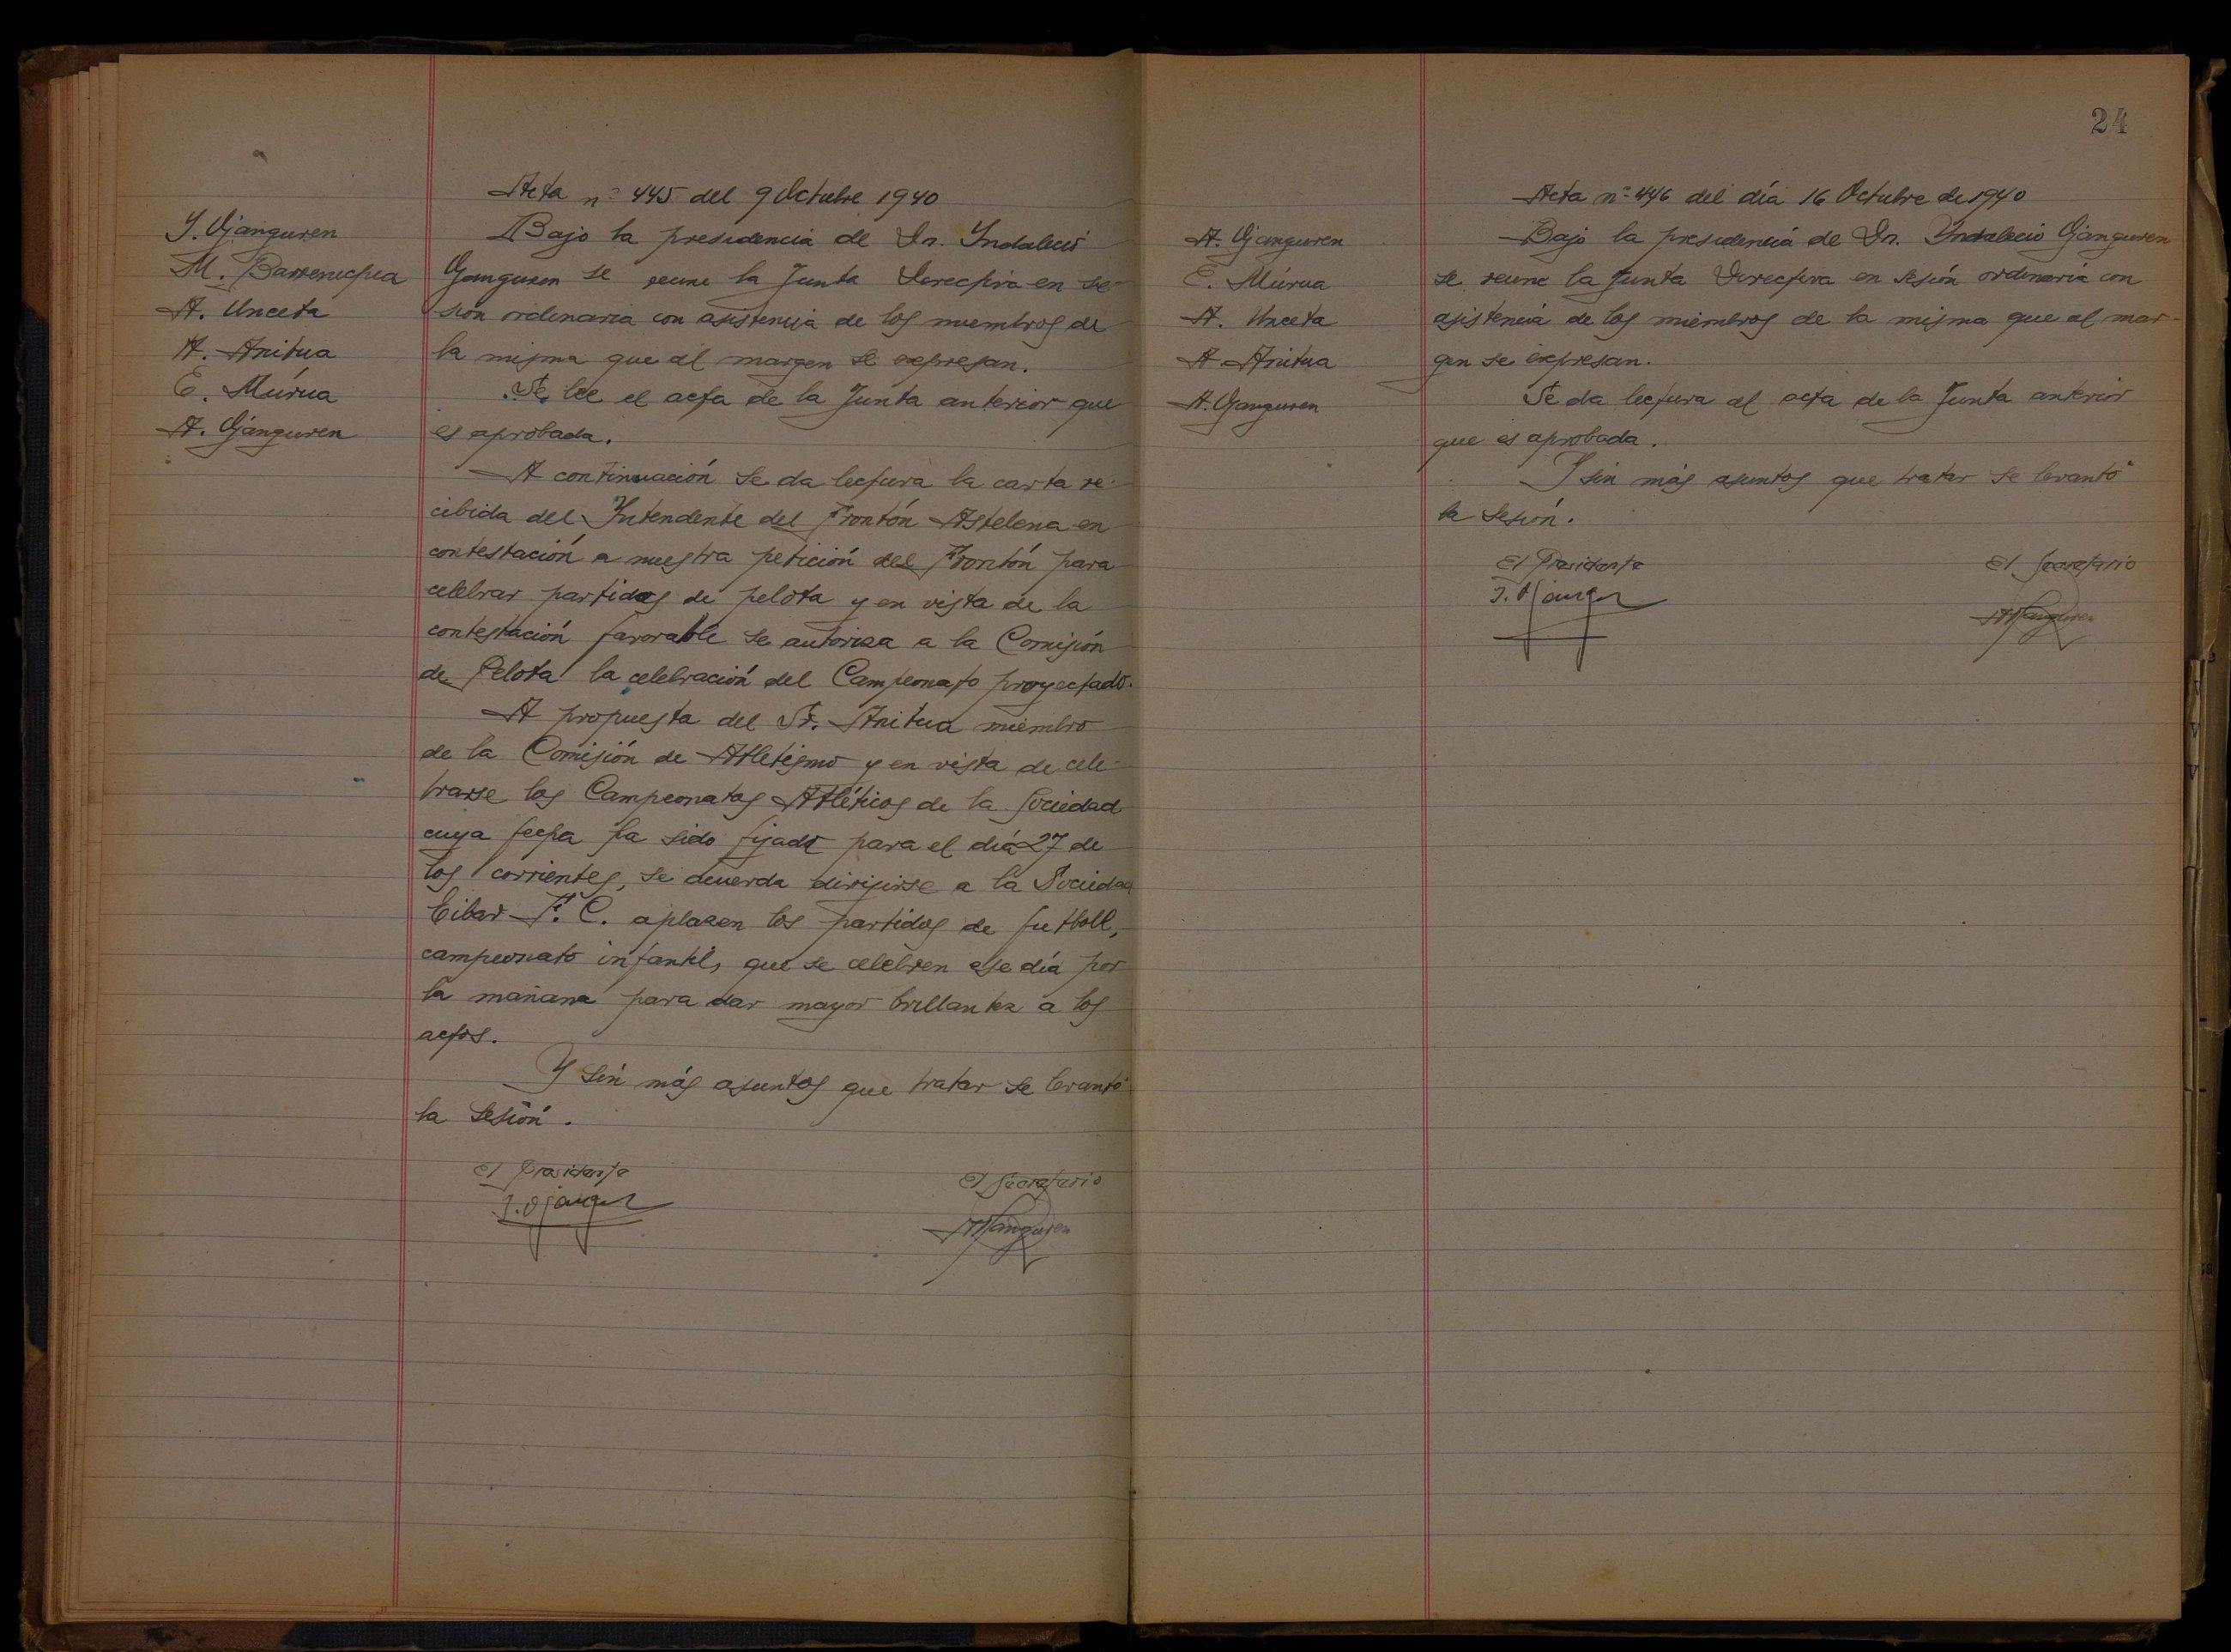 Acta nº 445 del 9 Octubre 1940
Y. Ojanguren
M. Barrenechea
A. Unceta
A. Anitua
E. Múrua
A. Ojanguren
Bajo la presidencia de Dn. Yndalecio
Ojanguren se reune la Junta Directiva en se-
sión ordinaria con asistencia de los miembros de
la misma que al margen se expresan.
Se lee el acta de la Junta anterior que
es aprobada.
A continuación se da lectura la carta re-
cibida del Yntendente del Frontón Astelena en
contestación a nuestra petición del Frontón para
celebrar partidos de pelota y en vista de la
contestación favorable se autoriza a la Comisión
de Pelota la celebración del Campeonato proyectado.
A propuesta del Sr. Anitua miembro
de la Comisión de Atletismo y en vista de cele-
brarse los Campeonatos Atléticos de la Sociedad
cuya fecha ha sido fijado para el día 27 de
los corrientes, se acuerda dirigirse a la Sociedad
Eibar F. C. aplazen los partidos de futboll,
campeonato infantil, que se celebren ese día por
la mañana para dar mayor brillantez a los
actos.
Y sin más asuntos que tratar se levantó
la sesión.
El Presidente
El Secretario
J. Ojangur
A Ojanguren
24
Acta nº 446 del día 16 Octubre de 1940
A. Ojanguren
E. Múrua
A. Unceta
A. Anitua
A. Ojanguren
Bajo la presidencia de Dn. Yndalecio Ojanguren
se reune la Junta Directiva en sesión ordinaria con
asistencia de los miembros de la misma que al mar-
gen se expresan.
Se da lectura al acta de la Junta anterior
que es aprobada.
Y sin más asuntos que tratar se levantó
la sesión.
El Presidente
El Secretario
J. Ojangur
A Ojanguren